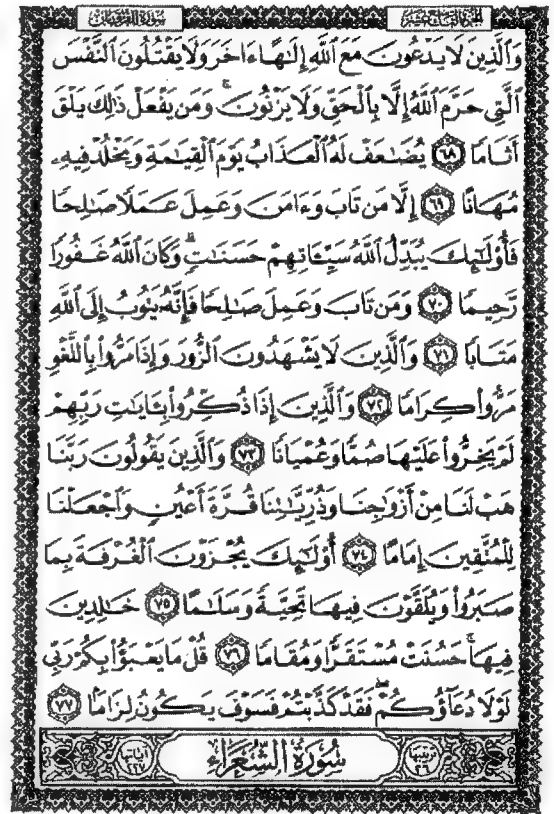 سورة الفرقان الجزء التاسع عشر
وَٱلَّذِينَ لَا يَدۡعُونَ مَعَ ٱللَّهِ إِلَٰهًا ءَاخَرَ وَلَا يَقۡتُلُونَ ٱلنَّفۡسَ
ٱلَّتِي حَرَّمَ ٱللَّهُ إِلَّا بِٱلۡحَقِّ وَلَا يَزۡنُونَۚ وَمَن يَفۡعَلۡ ذَٰلِكَ يَلۡقَ
أَثَامٗا ٦٨ يُضَٰعَفۡ لَهُ ٱلۡعَذَابُ يَوۡمَ ٱلۡقِيَٰمَةِ وَيَخۡلُدۡ فِيهِۦ
مُهَانًا ٦٩ إِلَّا مَن تَابَ وَءَامَنَ وَعَمِلَ عَمَلٗا صَٰلِحٗا
فَأُوْلَٰٓئِكَ يُبَدِّلُ ٱللَّهُ سَيِّـَٔاتِهِمۡ حَسَنَٰتٖۗ وَكَانَ ٱللَّهُ غَفُورٗا
رَّحِيمٗا ٧٠ وَمَن تَابَ وَعَمِلَ صَٰلِحٗا فَإِنَّهُۥ يَتُوبُ إِلَى ٱللَّهِ
مَتَابٗا ٧١ وَٱلَّذِينَ لَا يَشۡهَدُونَ ٱلزُّورَ وَإِذَا مَرُّواْ بِٱللَّغۡوِ
مَرُّواْ كِرَامٗا ٧٢ وَٱلَّذِينَ إِذَا ذُكِّرُواْ بِـَٔايَٰتِ رَبِّهِمۡ
لَمۡ يَخِرُّواْ عَلَيۡهَا صُمّٗا وَعُمۡيَانٗا ٧٣ وَٱلَّذِينَ يَقُولُونَ رَبَّنَا
هَبۡ لَنَا مِنۡ أَزۡوَٰجِنَا وَذُرِّيَّٰتِنَا قُرَّةَ أَعۡيُنٖ وَٱجۡعَلۡنَا
لِلۡمُتَّقِينَ إِمَامًا ٧٤ أُوْلَٰٓئِكَ يُجۡزَوۡنَ ٱلۡغُرۡفَةَ بِمَا
صَبَرُواْ وَيُلَقَّوۡنَ فِيهَا تَحِيَّةٗ وَسَلَٰمًا ٧٥ خَٰلِدِينَ
فِيهَاۚ حَسُنَتۡ مُسۡتَقَرّٗا وَمُقَامٗا ٧٦ قُلۡ مَا يَعۡبَؤُاْ بِكُمۡ رَبِّي
لَوۡلَا دُعَآؤُكُمۡۖ فَقَدۡ كَذَّبۡتُمۡ فَسَوۡفَ يَكُونُ لِزَامَۢا ٧٧
ترتيبها ٢٦ سُورَةُ الشُّعَرَاءِ آياتها ٢٢٧